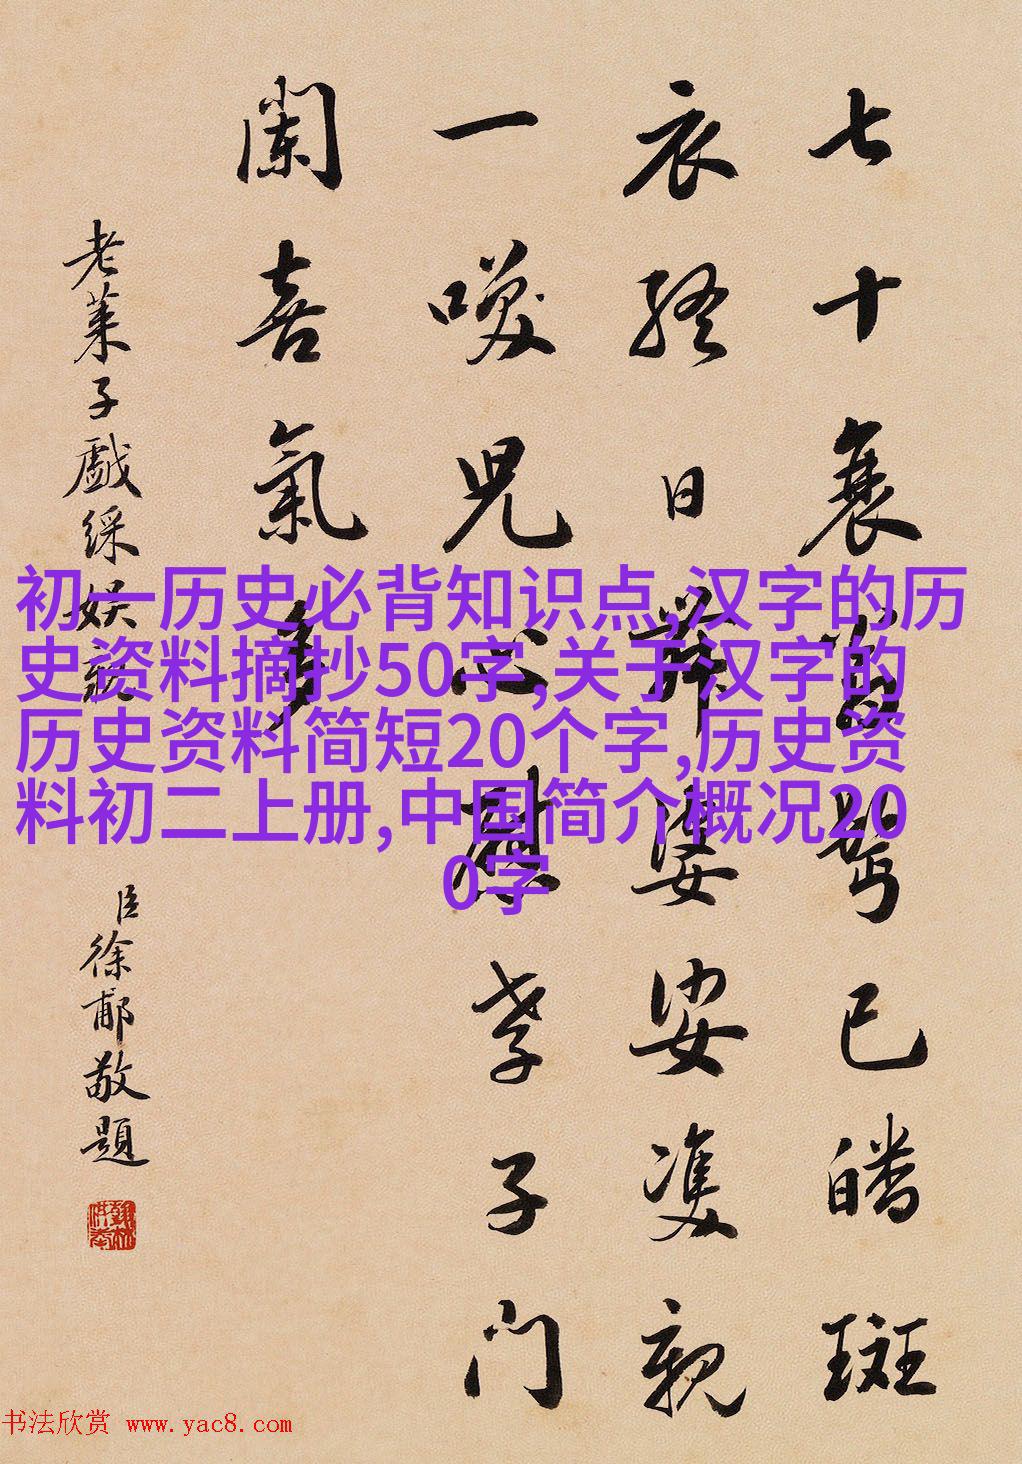 七十衰已皤斑
衣終日舞婆娑雙親
一咲兒心慰孝子門
闌喜氣多
老萊子戲綵娛親
臣徐郙敬題
初一历史必背知识点,汉字的历
史资料摘抄50字,关于汉字的
历史资料简短20个字,历史资
料初二上册,中国简介概况20
0字
书法欣赏 www.yac8.com